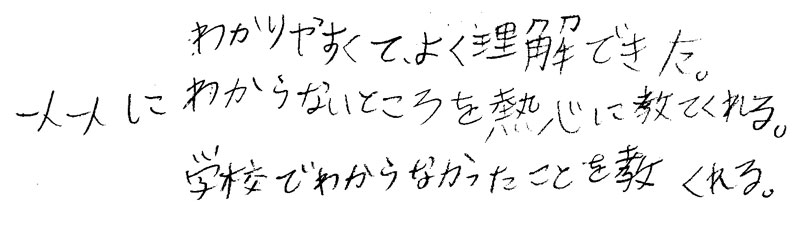 わかりやすくて、よく理解できた。
一人一人に わからないところを熱心に教てくれる。
学校でわからなかったことを教 くれる。